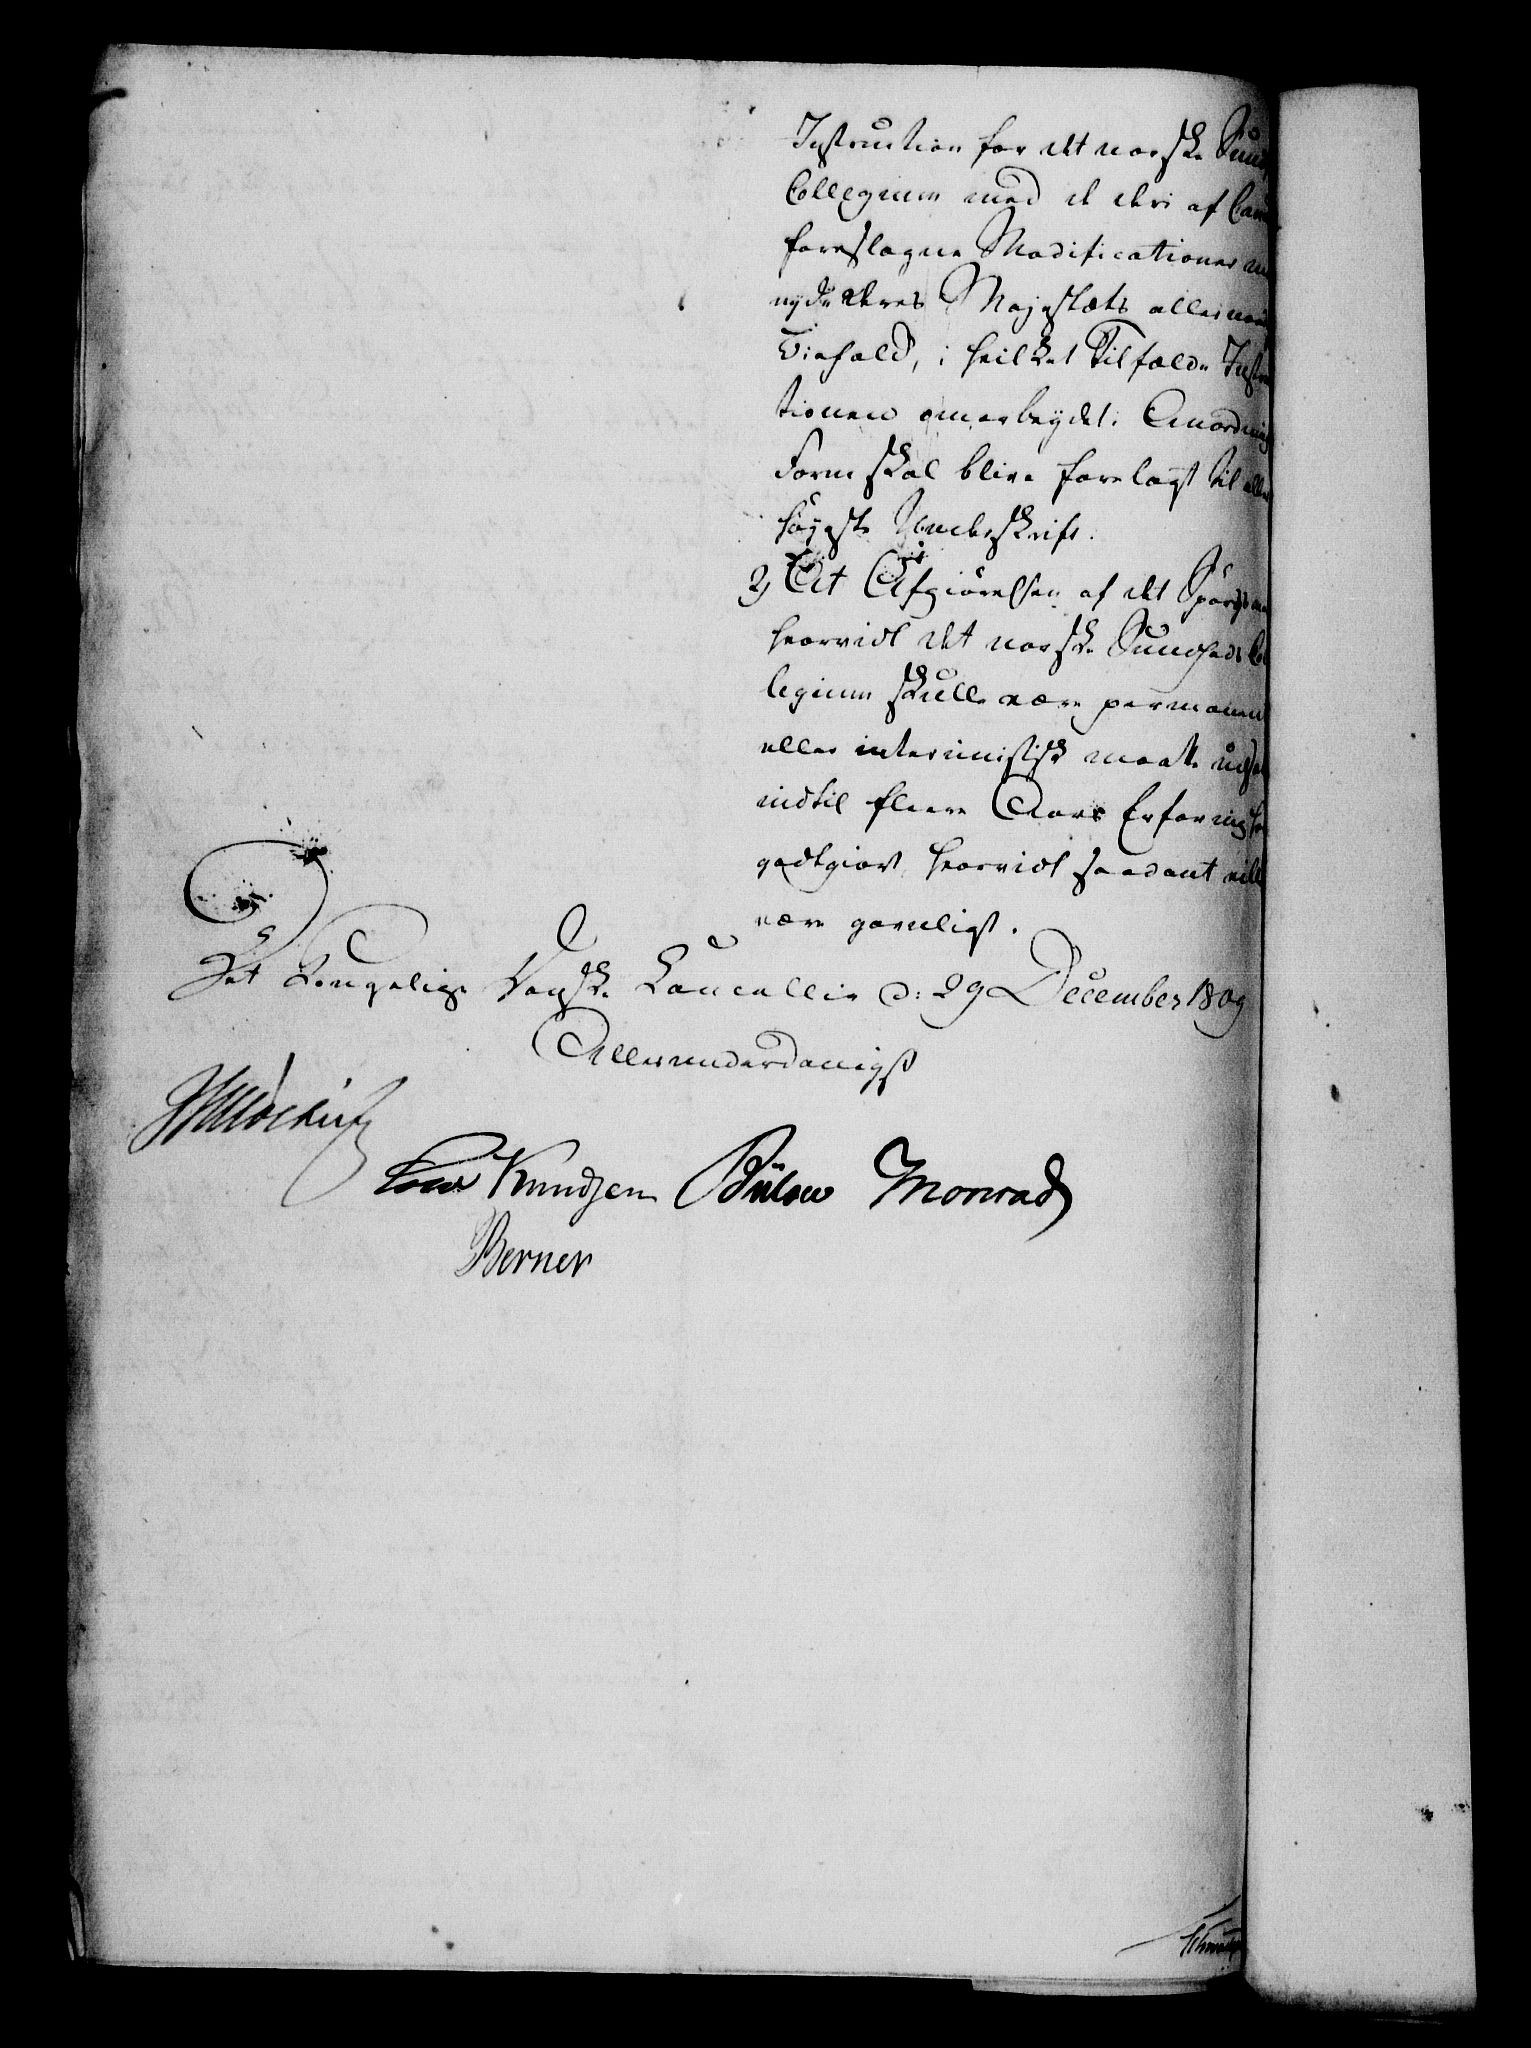 Instruction for det norske Sund
Collegium med de deri af Can
foreslagne Modificationer
nyde Deres Majestæts allernaa
Biefald, i hvilket Tilfælde Instruc
tionen omarbeydet i Anordnings
Form skal blive forelagt til aller
høyeste Underskrift.
2) At Afgiørelsen af det Spørgsmaa
hvorvidt det norske Sundheds Col
legium skulle være permanent
eller interimistisk maatte udsæt
indtil fleere Aars Erfaring
godtgiort hvorvidt saadant vill
være gavnligt.
Det Kongelige Danske Cancellie d: 29 December 1809
Allerunderdanigst
Knudsen Bülow Monrad
Berner